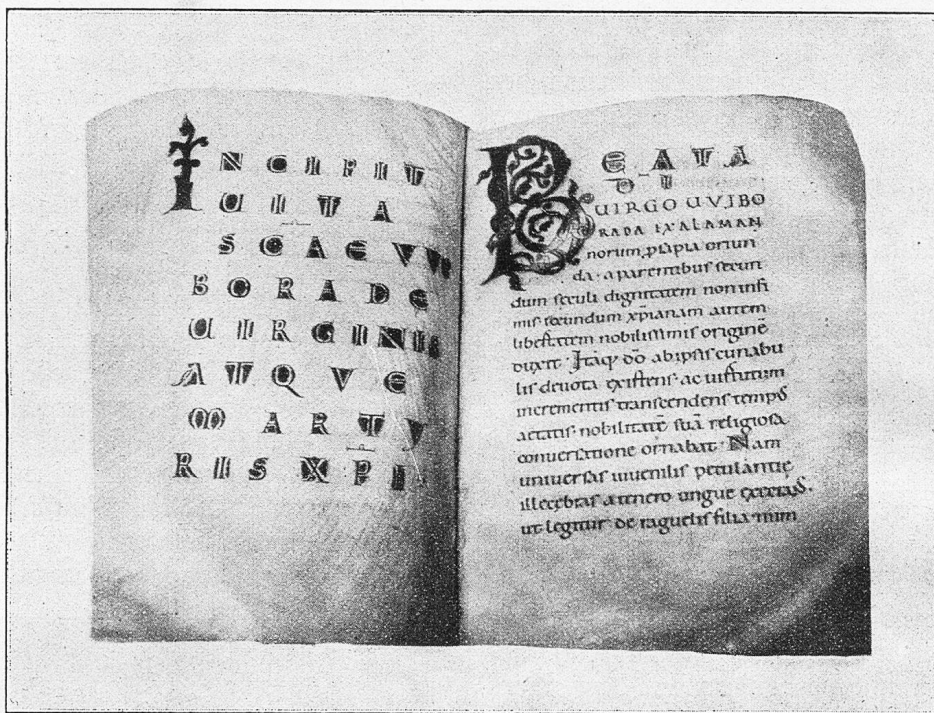 INCIPIT
UITA
SCAE VVI
BORADE
UIRGINIS
ATQVE
MARTY
RIS XPI·
BEATA
D̄I
UIRGO UVIBO
RADA EX ALAMAN
norum p̱sapia oriun
da· a parentibus secun
dum seculi dignitatem non infi
mis· secundum xp̄ianam autem
libertatem nobilissimis originē
duxit· Itaq; dō ab ipsis cunabu
lis devota existens· ac uirtutum
incrementis transcendens tempꝰ
aetatis· nobilitatē suā religiosa
conversatione ornabat· Nam
universas iuvenilis petulantię
illecebras a tenero ungue
ut legitur de raguelis filia